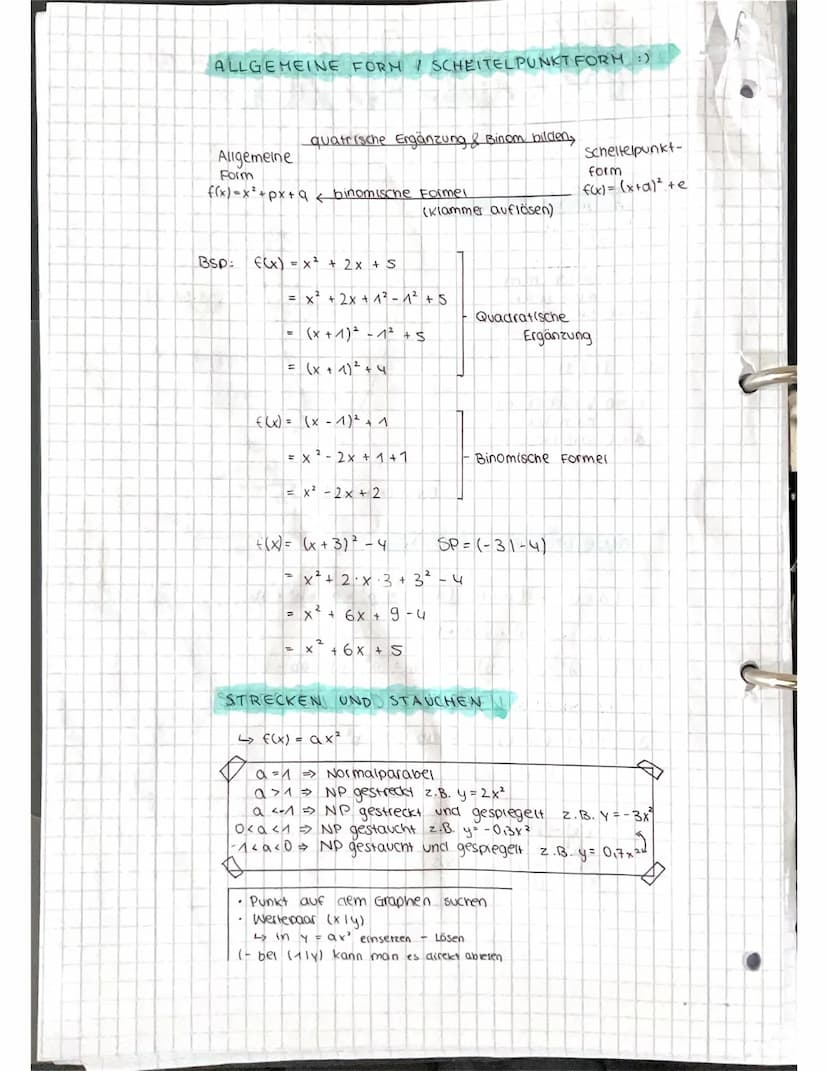 ALLGEMEINE FORM / SCHEITELPUNKTFORM :)
quatrische Ergänzung & Binom bilden
Allgemeine
Form
f(x)=x²+px+q
binomische Formel
(Klammer auflösen)
Scheitelpunkt-
form
f(x)=(x+d)²+e
BSP: f(x) = x² + 2x + 5
= x² + 2x + 1² - 1² + 5
= (x + 1)² - 1² + 5
= (x + 1)² + 4
Quadratische
Ergänzung
f(x) = (x - 1)² + 1
= x² - 2x + 1 + 1
= x² - 2x + 2
Binomische Formel
f(x) = (x + 3)² - 4 SP = (-3|-4)
= x² + 2·x·3 + 3² - 4
= x² + 6x + 9 - 4
= x² + 6x + 5
STRECKEN UND STAUCHEN
↳ f(x) = ax²
a = 1 ⇒ Normalparabel
a > 1 ⇒ NP gestreckt z.B. y = 2x²
a < -1 ⇒ NP gestreckt und gespiegelt z.B. y = -3x²
0 < a < 1 ⇒ NP gestaucht z.B. y = -0,3x²
-1 < a < 0 ⇒ NP gestaucht und gespiegelt z.B. y = 0,7x²
• Punkt auf dem Graphen suchen
• Wertepaar (x|y)
↳ in y = ax² einsetzen - Lösen
(- bei (1|y) kann man es direkt ablesen